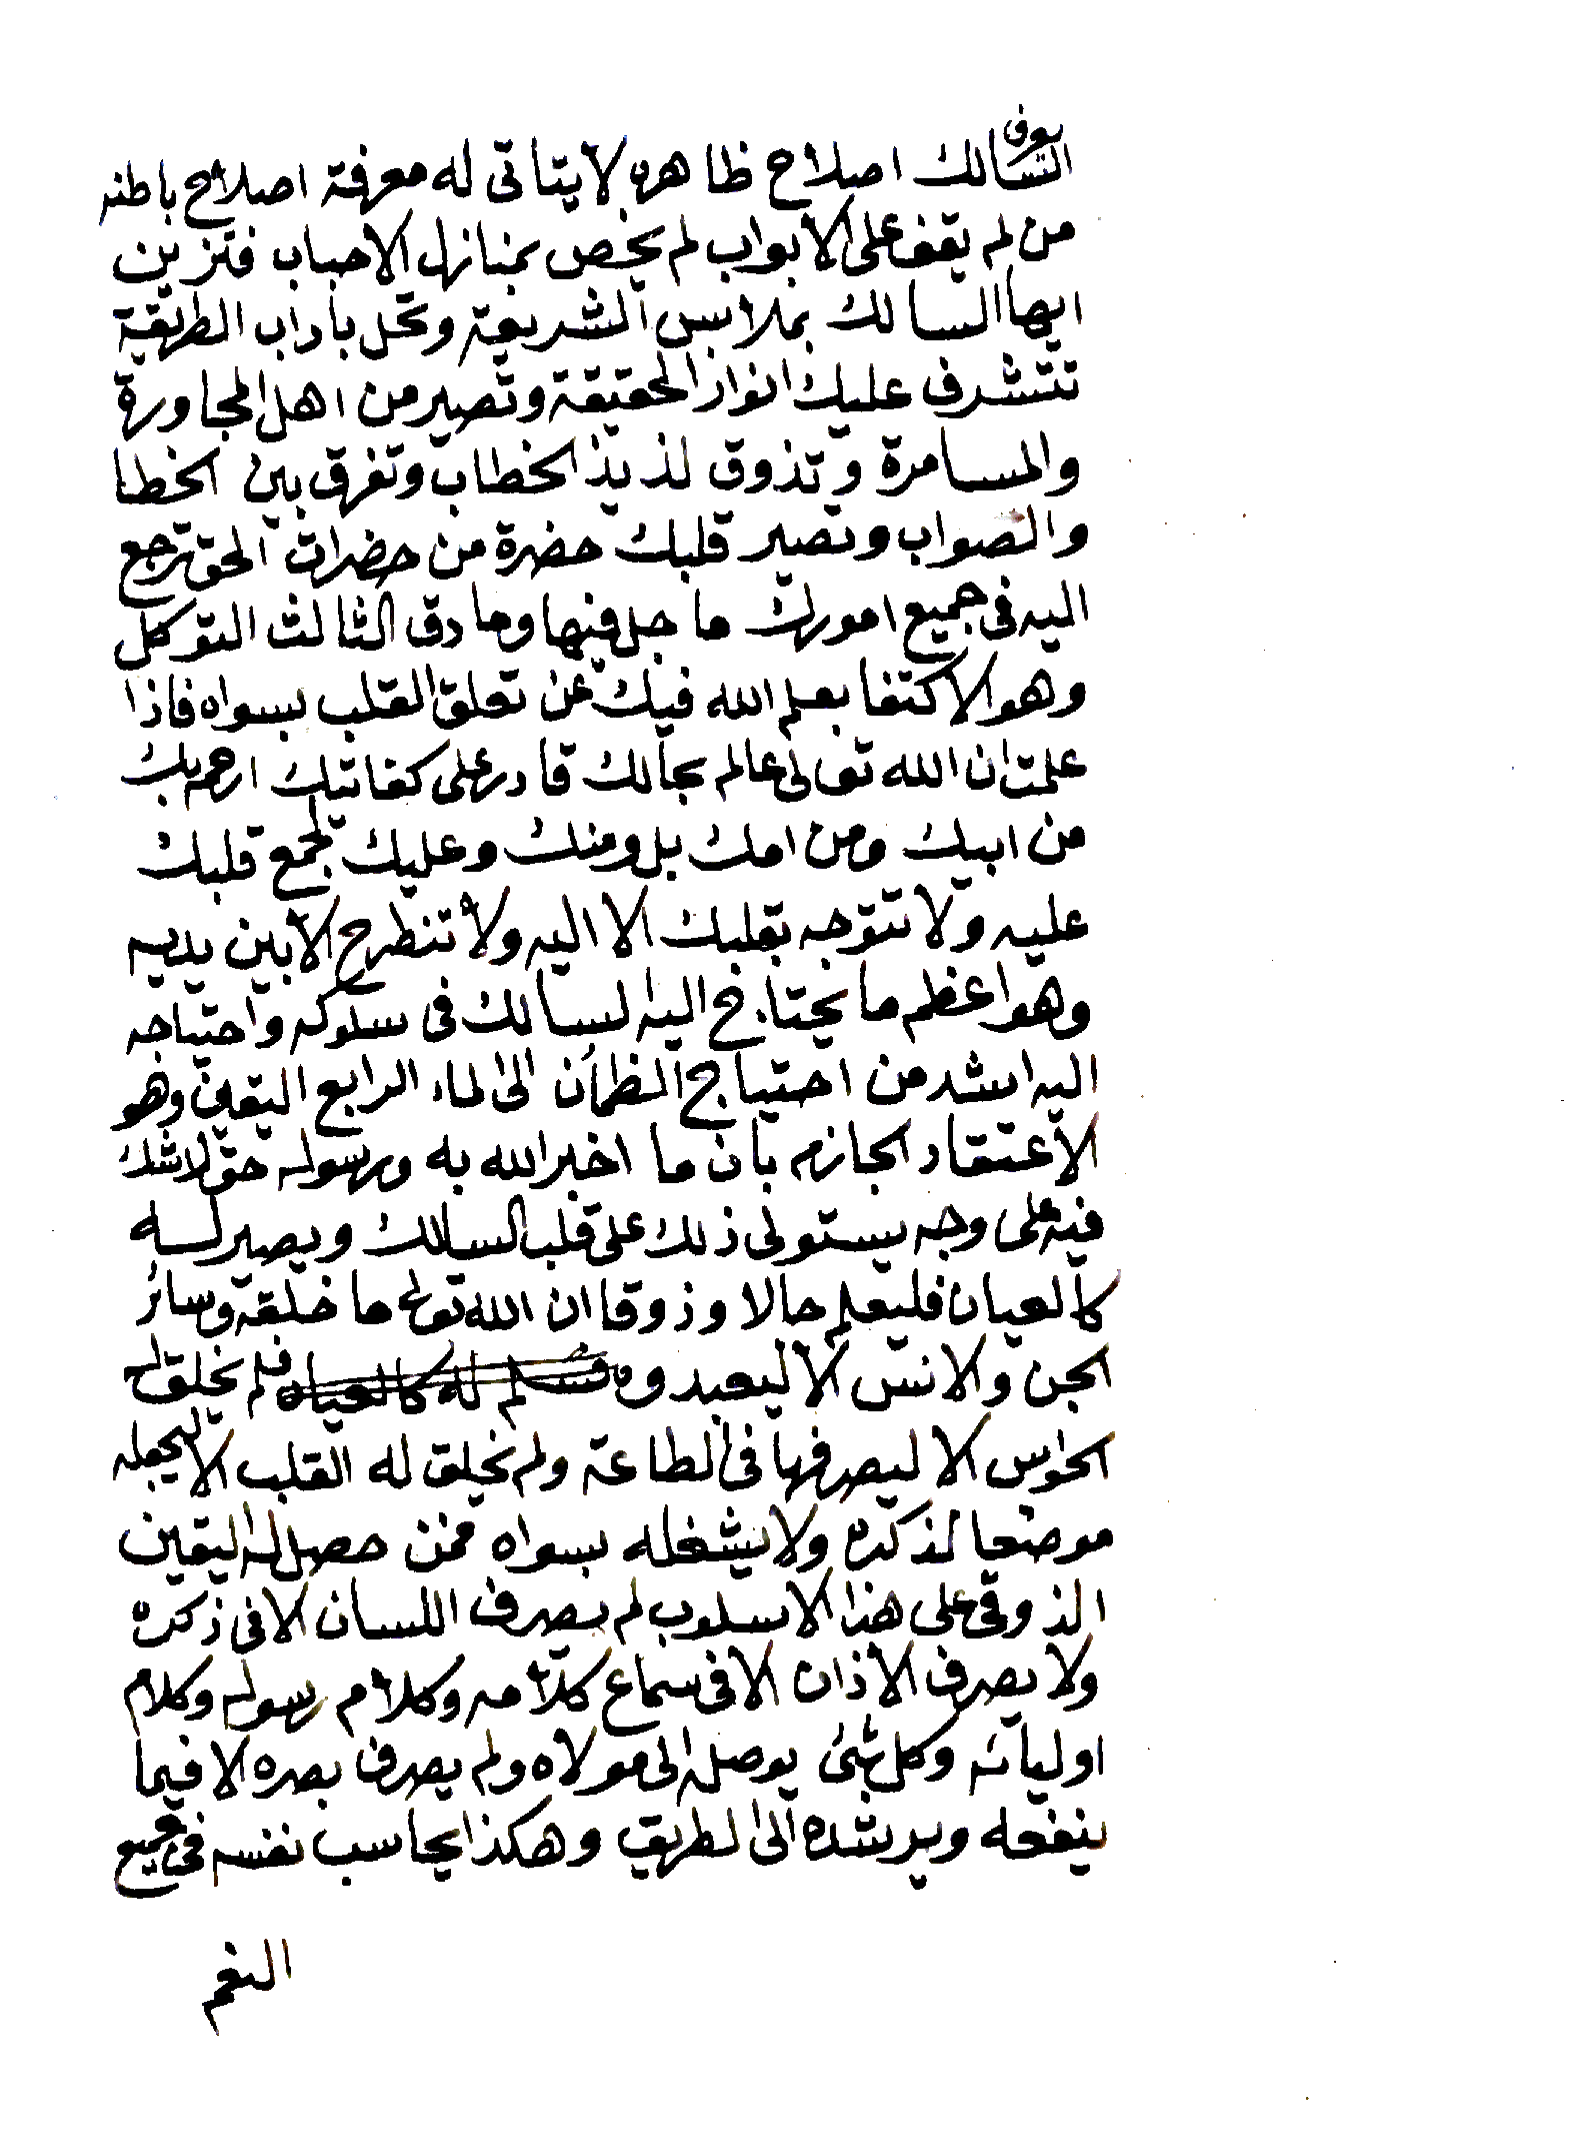 يعرف
السالك اصلاح ظاهره لا يتاتى له معرفة اصلاح باطنه
من لم يقف على الابواب لم يخص بمنازل الاحباب فتزين
ايها السالك بملابس الشريعة وتحل باداب الطريقة
تتشرف عليك انوار الحقيقة وتصير من اهل المجاورة
والمسامرة وتذوق لذيذ الخطاب وتفرق بين الخطا
والصواب وتصير قلبك حضرة من حضرات الحق ترجع
اليه فى جميع امورك ما جل فيها وما دق الثالث التوكل
وهو الاكتفا بعلم الله فيك عن تعلق القلب بسواه فاذا
علمت ان الله تعالى عالم بحالك قادر على كفايتك ارحم بك
من ابيك ومن امك بل ومنك وعليك تجمع قلبك
عليه ولا تتوجه بقلبك الا اليه ولا تنطرح الا بين يديه
وهو اعظم ما يحتاج اليه السالك فى سلوكه واحتياجه
اليه اشد من احتياج الظمأن الى الماء الرابع اليقين وهو
الاعتقاد الجازم بان ما اخبر الله به ورسوله حق لا شك
فيه على وجه يستولى ذلك على قلب السالك ويصير له
كالعيان فليعلم حالا وذوقا ان الله تعالى ما خلقه وسائر
الجن والانس الا ليعبدوه فلم يخلق له
الحواس الا ليصرفها فى الطاعة ولم يخلق له القلب الا ليجعله
موضعا لذكره ولا يشغله بسواه فمن حصل له اليقين
الذوقى على هذا الاسلوب لم يصرف اللسان الا فى ذكره
ولا يصرف الاذان الا فى سماع كلامه وكلام رسوله وكلام
اوليائه وكل شئ يوصله الى مولاه ولم يصرف بصره الا فيما
ينفعه ويرشده الى الطريق وهكذا يحاسب نفسه فى جميع
النعم